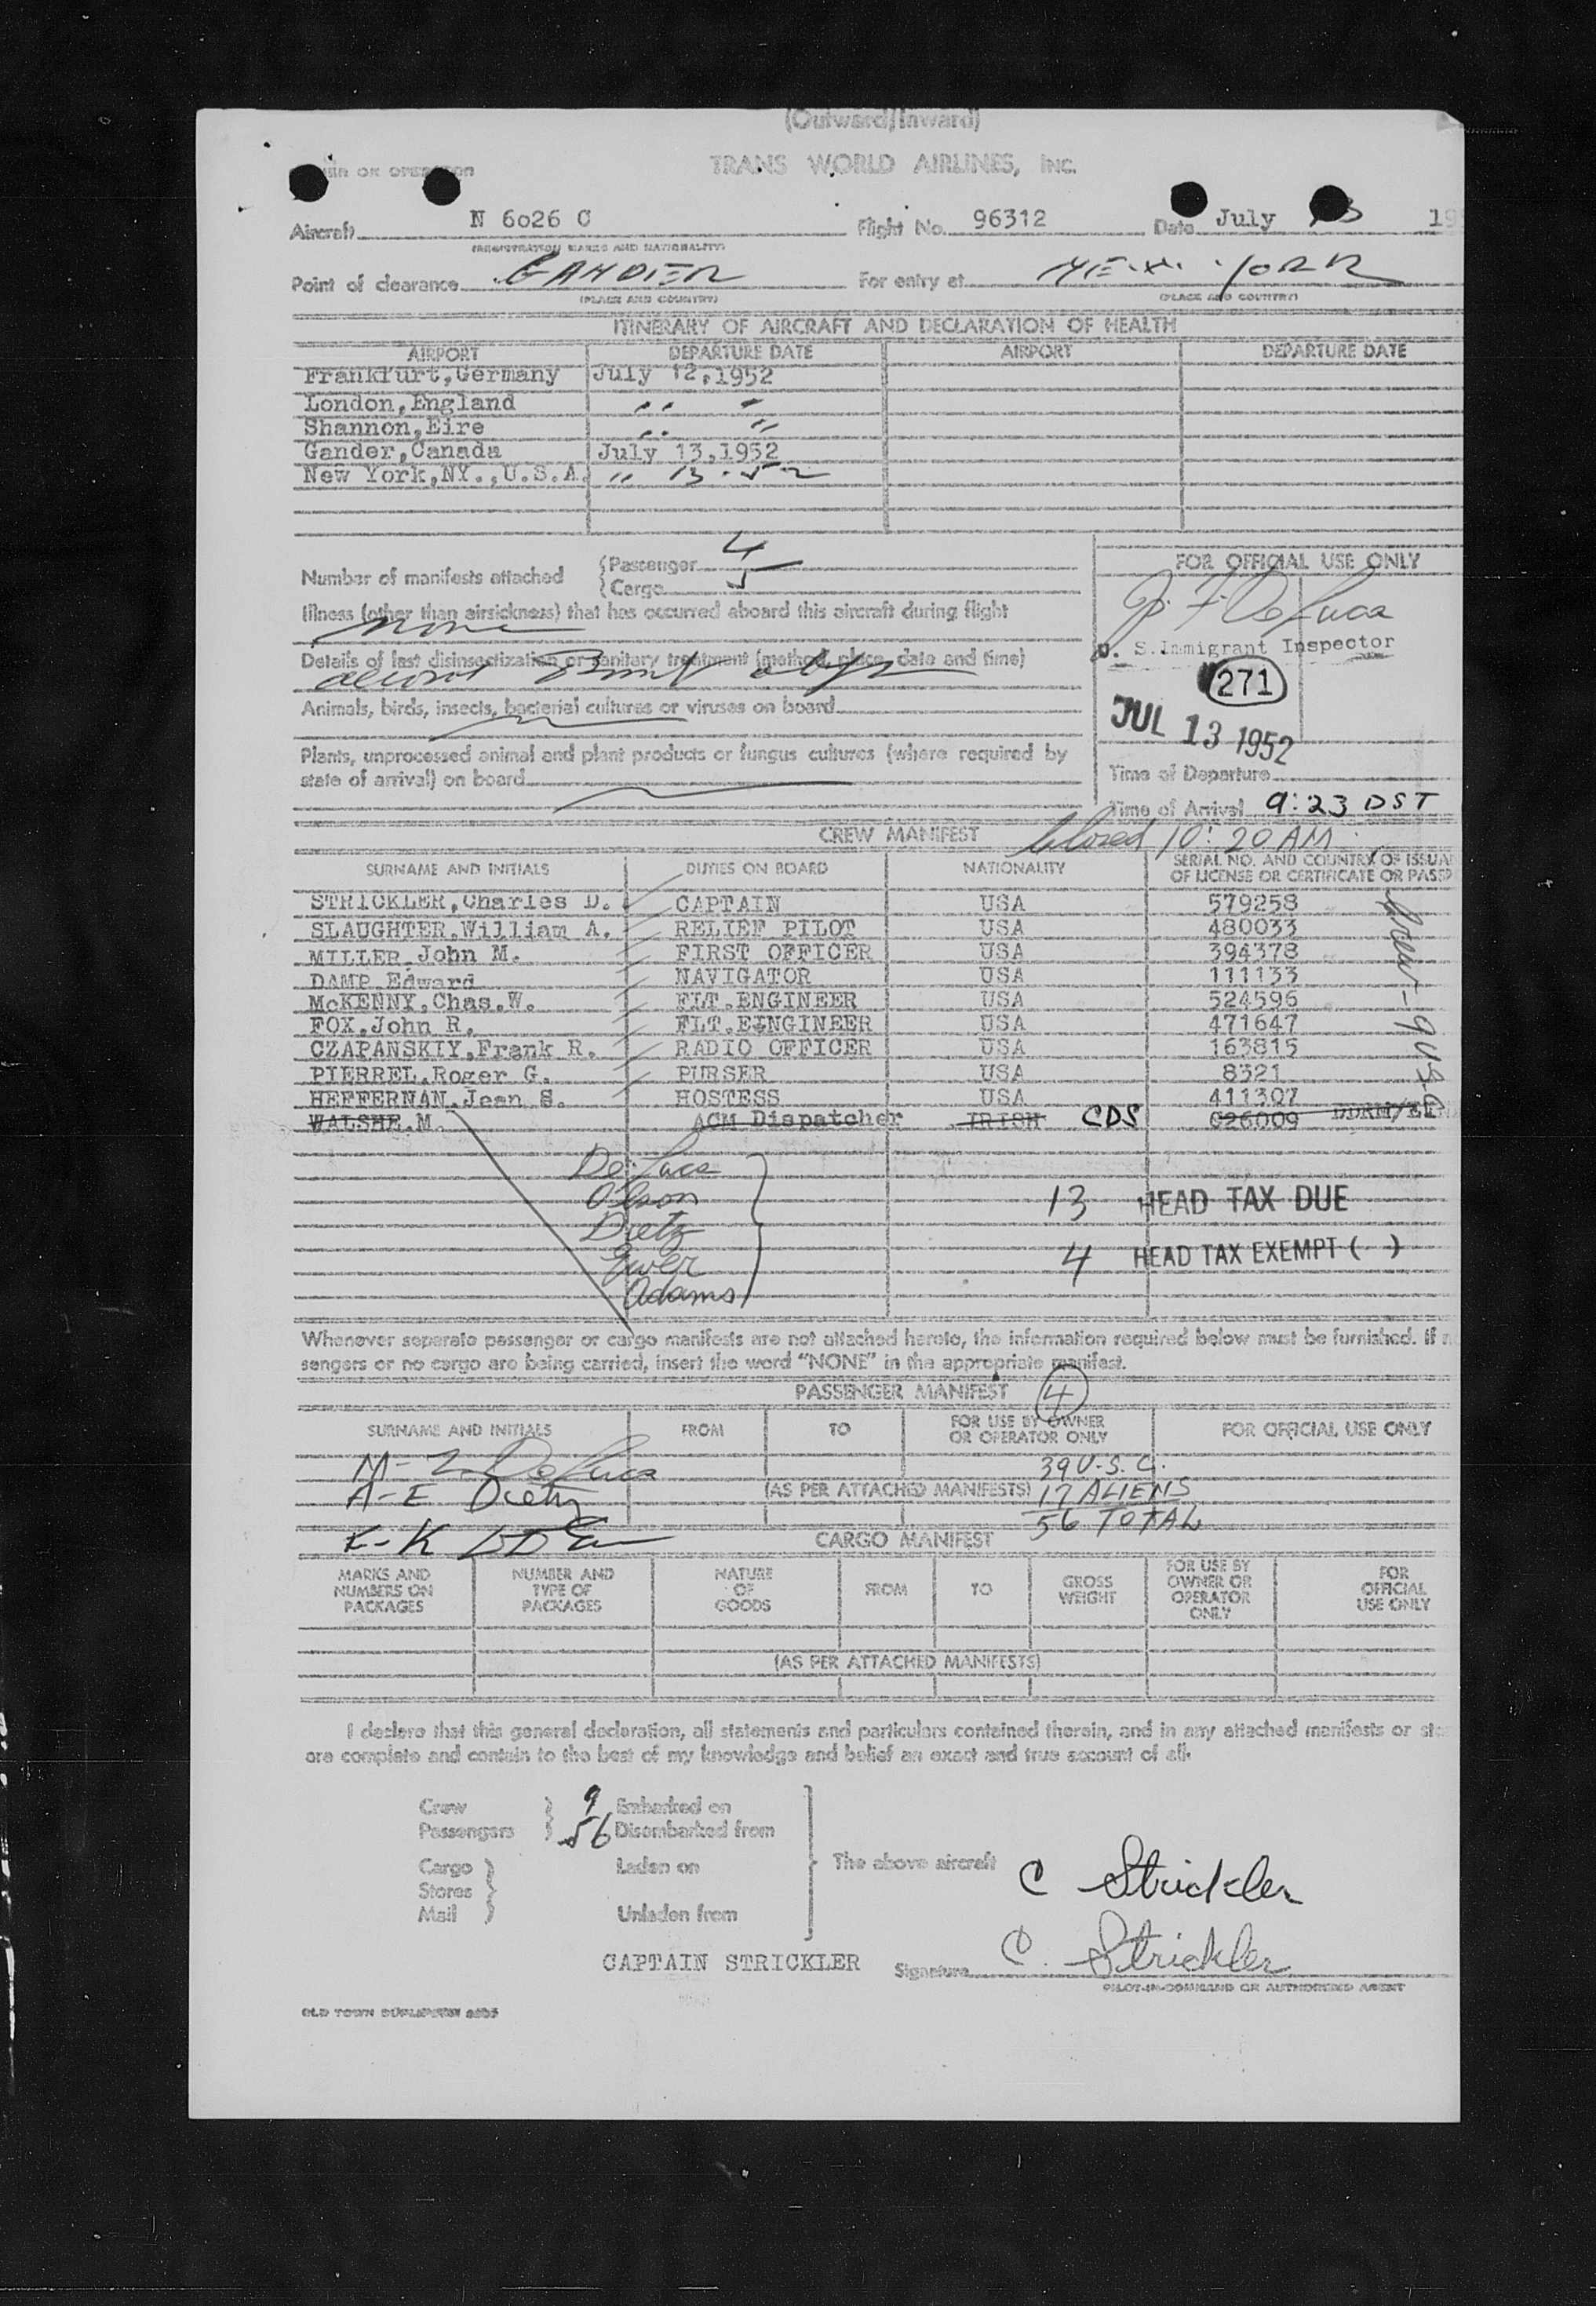 (Outward/Inward)
TRANS WORLD AIRLINES, INC.
Aircraft N 6026 C Flight No. 96312 Date July 13 19
(REGISTRATION MARKS AND NATIONALITY)
Point of clearance GANDER For entry at NEW YORK
(PLACE AND COUNTRY) (PLACE AND COUNTRY)
ITINERARY OF AIRCRAFT AND DECLARATION OF HEALTH
AIRPORT DEPARTURE DATE AIRPORT DEPARTURE DATE
Frankfurt,Germany July 12,1952
London,England " "
Shannon,Eire " "
Gander,Canada July 13,1952
New York,NY.,U.S.A. " 13-52
Number of manifests attached { Passenger 4
{ Cargo 5
FOR OFFICIAL USE ONLY
J. F. DeLuca
U. S. Immigrant Inspector
271
JUL 13 1952
Time of Departure
Time of Arrival 9:23 DST
Illness (other than airsickness) that has occurred aboard this aircraft during flight
none
Details of last disinsectization or sanitary treatment (method, place, date and time)
Animals, birds, insects, bacterial cultures or viruses on board
Plants, unprocessed animal and plant products or fungus cultures (where required by
state of arrival) on board
CREW MANIFEST Closed 10:20 AM
SURNAME AND INITIALS DUTIES ON BOARD NATIONALITY SERIAL NO. AND COUNTRY OF ISSUA
OF LICENSE OR CERTIFICATE OR PASSP
STRICKLER,Charles D. CAPTAIN USA 579258
SLAUGHTER,William A. RELIEF PILOT USA 480033
MILLER,John M. FIRST OFFICER USA 394378
DAMP,Edward NAVIGATOR USA 111133
McKENNY,Chas.W. FLT.ENGINEER USA 524596
FOX,John R. FLT.EINGINEER USA 471647
CZAPANSKIY,Frank R. RADIO OFFICER USA 163815
PIERREL,Roger G. PURSER USA 8321
HEFFERNAN,Jean S. HOSTESS USA 411307
WALSHE.M. ACM Dispatcher IRISH CDS C26009
Crew - 9 USC
DeLuca
Olson
Dietz
Ewer
Adams
13 HEAD TAX DUE
4 HEAD TAX EXEMPT ( )
Whenever separate passenger or cargo manifests are not attached hereto, the information required below must be furnished. If n
sengers or no cargo are being carried, insert the word "NONE" in the appropriate manifest.
PASSENGER MANIFEST 4
SURNAME AND INITIALS FROM TO FOR USE BY OWNER
OR OPERATOR ONLY FOR OFFICIAL USE ONLY
M-Z DeLuca 39 U.S.C.
A-E Dietz (AS PER ATTACHED MANIFESTS) 17 ALIENS
F-K 56 TOTAL
CARGO MANIFEST
MARKS AND
NUMBERS ON
PACKAGES
NUMBER AND
TYPE OF
PACKAGES
NATURE
OF
GOODS
FROM
TO
GROSS
WEIGHT
FOR USE BY
OWNER OR
OPERATOR
ONLY
FOR
OFFICIAL
USE ONLY
(AS PER ATTACHED MANIFESTS)
I declare that this general declaration, all statements and particulars contained therein, and in any attached manifests or sto
are complete and contain to the best of my knowledge and belief an exact and true account of all.
Crew } 9 Embarked on
Passengers } 56 Disembarked from
Cargo } Laden on The above aircraft C Strickler
Stores
Mail } Unladen from
CAPTAIN STRICKLER Signature C. Strickler
PILOT-IN-COMMAND OR AUTHORIZED AGENT